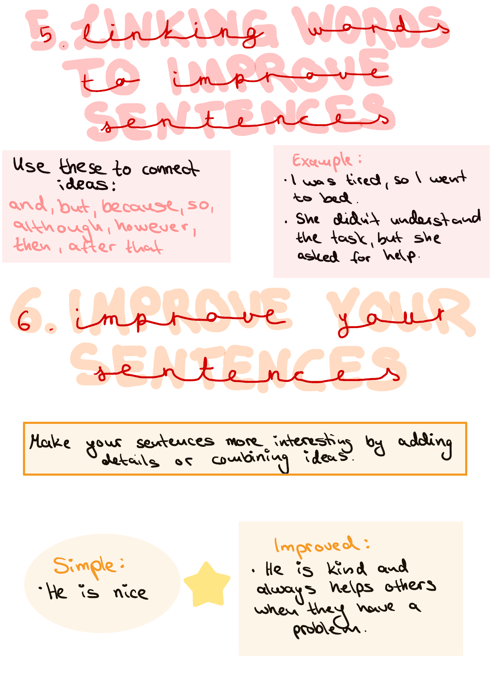 5. linking words
to improve
sentences
Use these to connect
ideas:
and, but, because, so,
although, however,
then, after that
Example:
· I was tired, so I went
to bed.
· She didn't understand
the task, but she
asked for help.
6. improve your
sentences
Make your sentences more interesting by adding
details or combining ideas.
Simple:
· He is nice
Improved:
· He is kind and
always helps others
when they have a
problem.